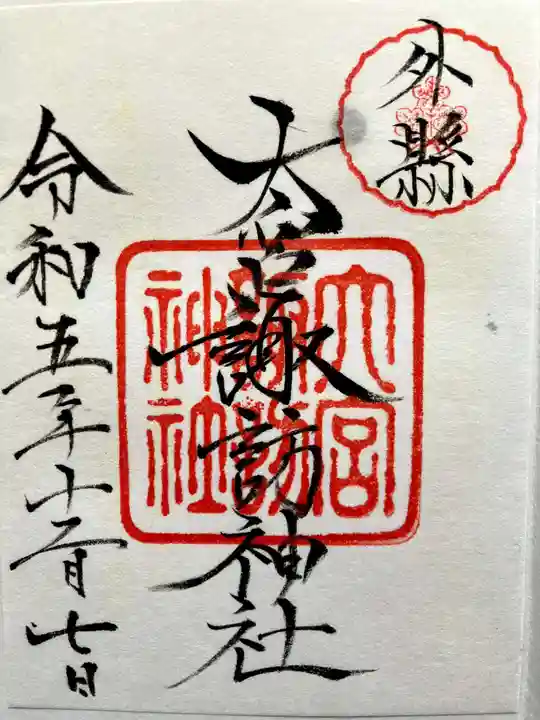 外縣
大宮諏訪神社
令和五年十二月七日
大宮
諏訪
神社